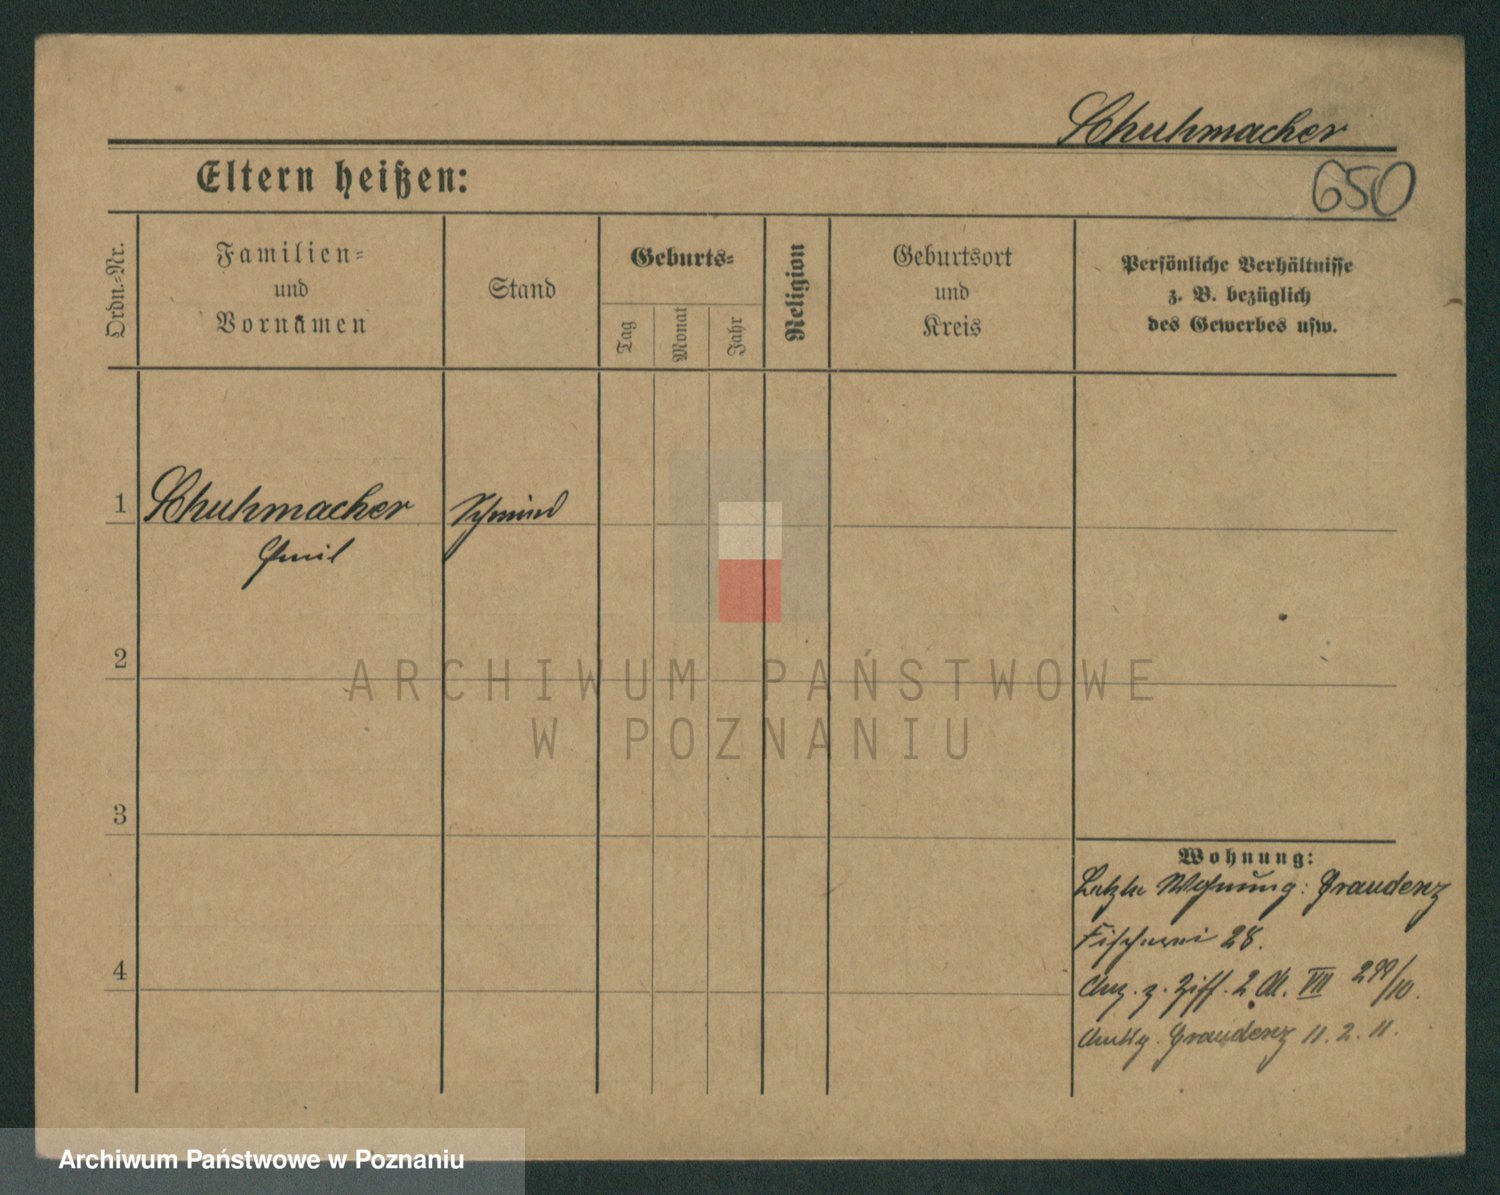 Schuhmacher
650
Eltern heißen:
Ordn.-Nr.
Familien-
und
Vornamen
Stand
Geburts-
Tag
Monat
Jahr
Religion
Geburtsort
und
Kreis
Persönliche Verhältnisse
z. B. bezüglich
des Gewerbes usw.
1
Schuhmacher
Schmied
Emil
2
ARCHIWUM PAŃSTWOWE
W POZNANIU
3
Wohnung:
Letzte Wohnung: Graudenz
Fischerei 28.
4
Anz. z. Ziff. 2 Al. VII 299/10.
Graudenz 11. 2. 11.
Archiwum Państwowe w Poznaniu